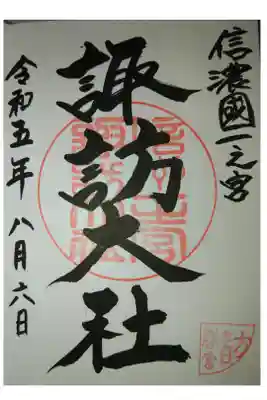 信濃國一之宮
諏訪大社
令和五年八月六日